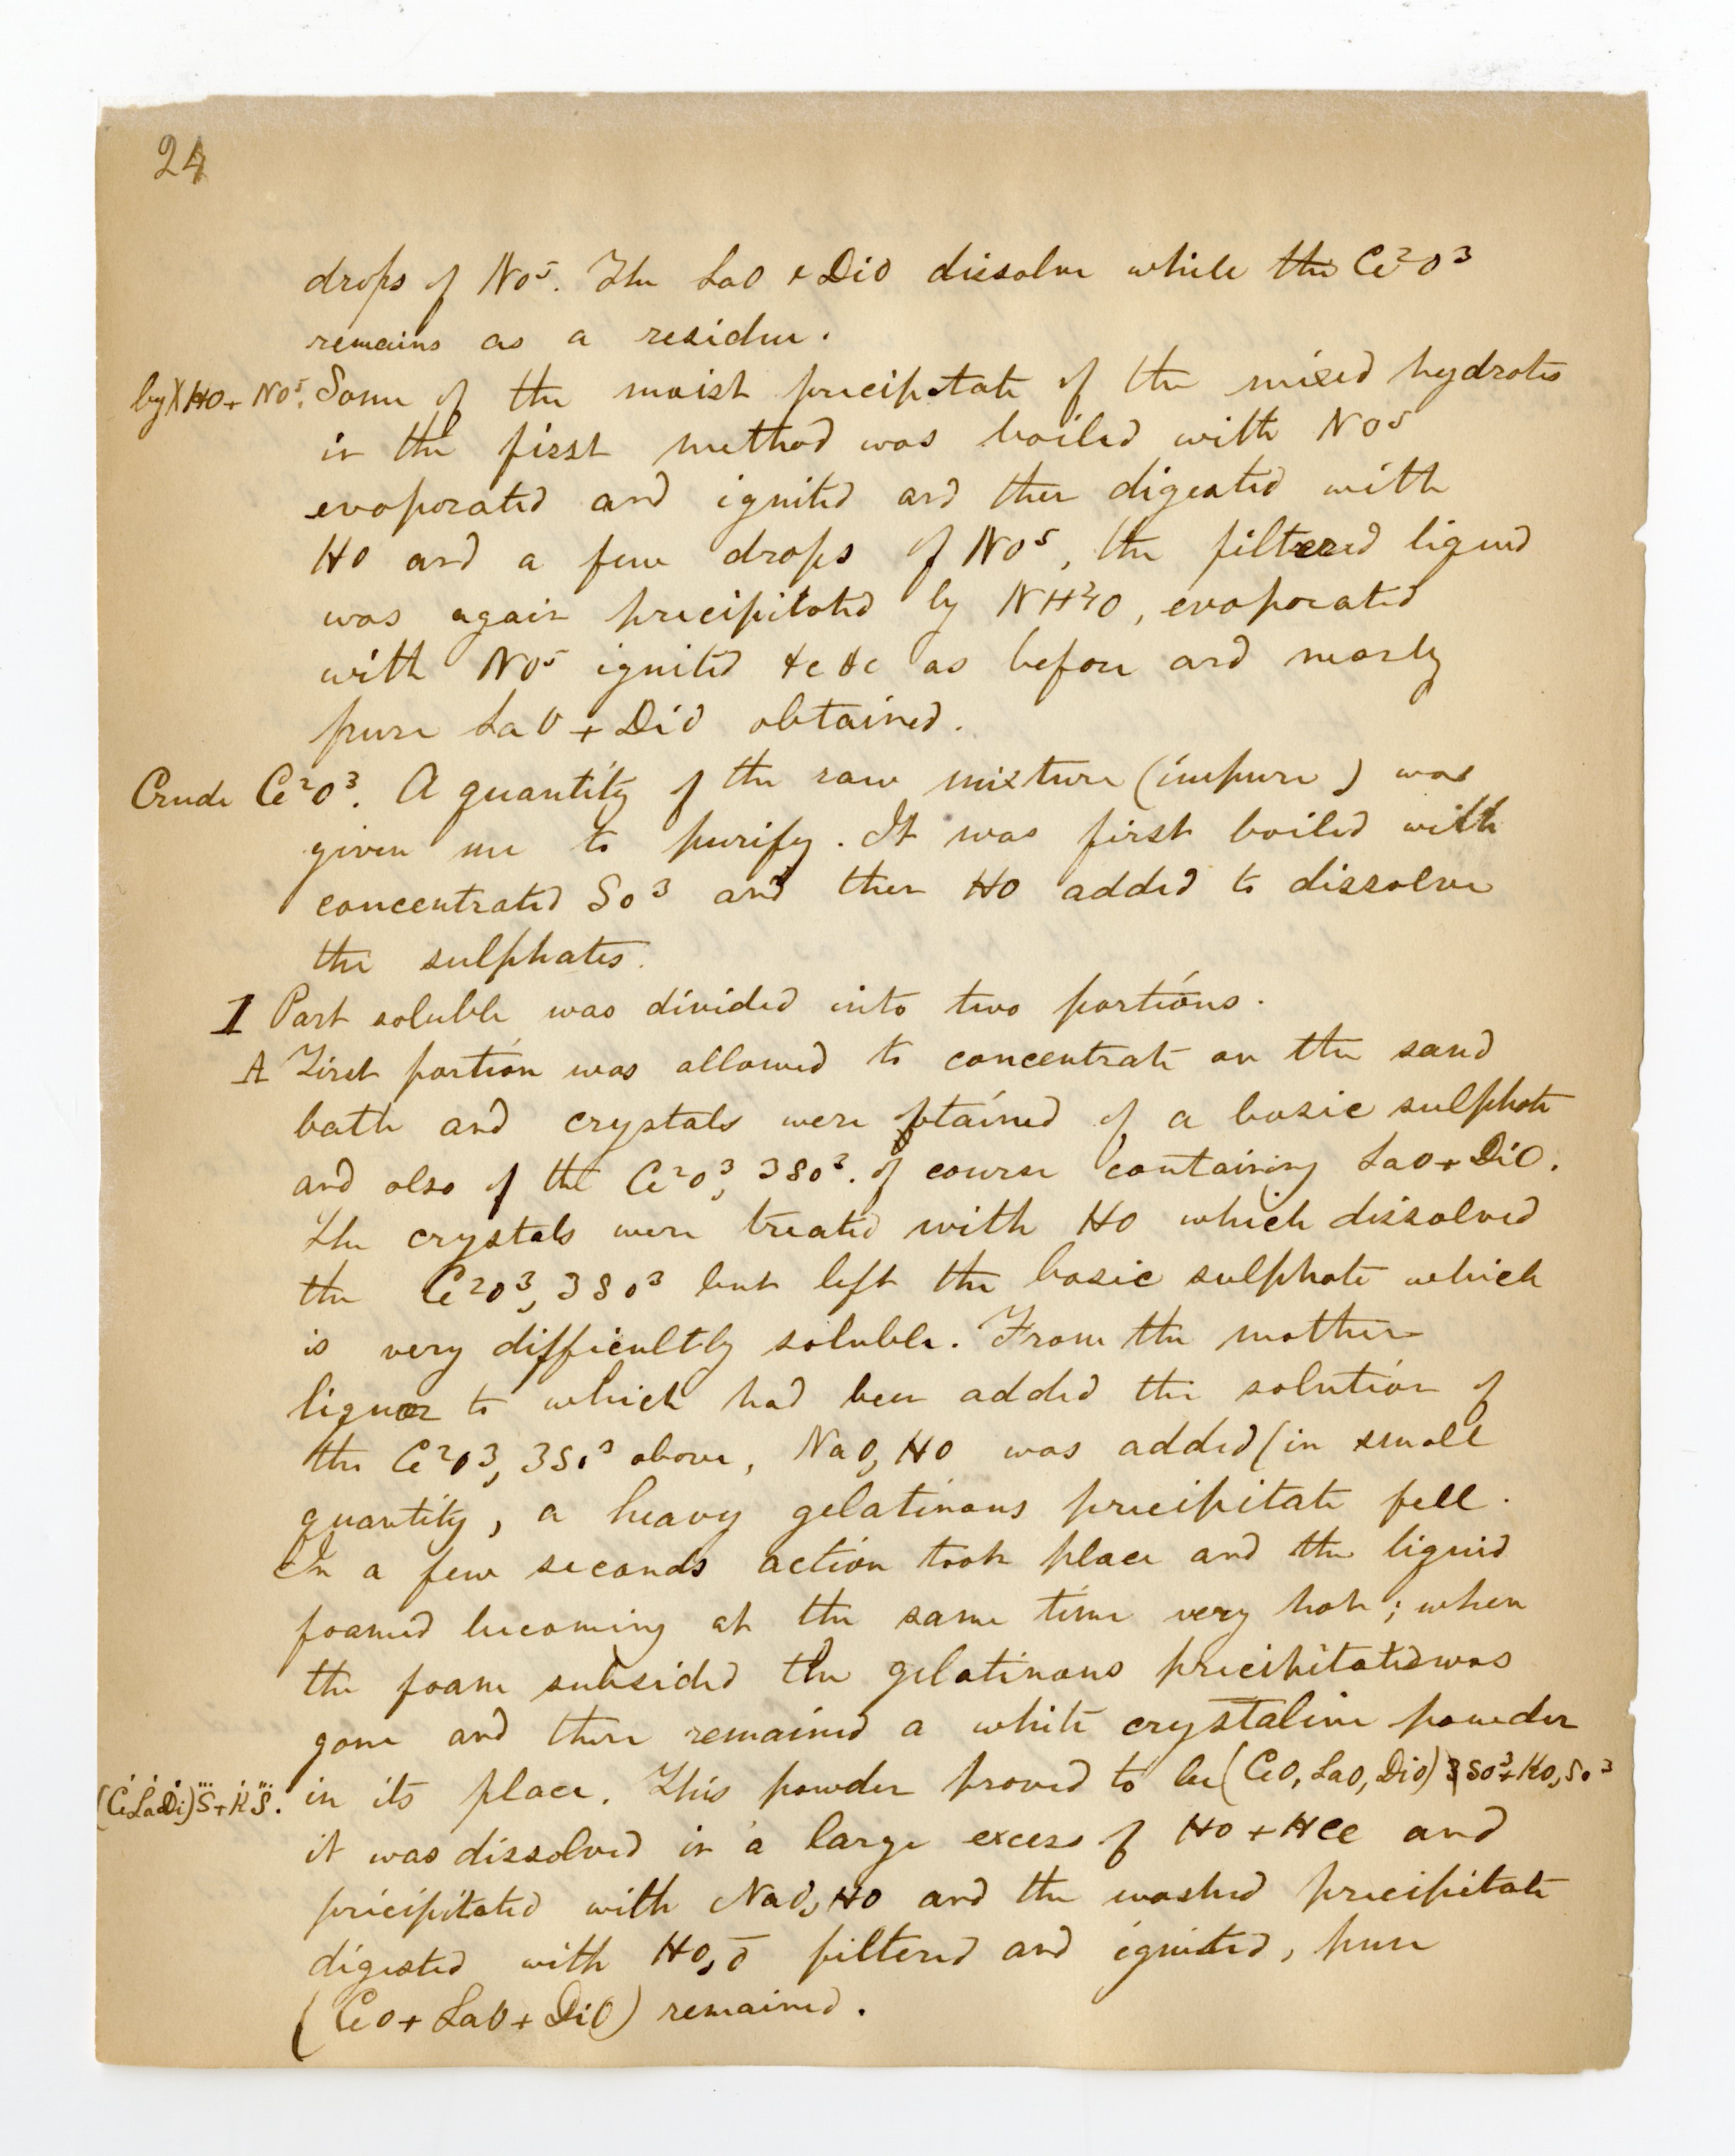 24
drops of NO⁵. The LaO & DiO dissolve while the Ce²O³
remains as a residue.
by XHO+NO⁵. Some of the moist precipitate of the mixed hydrates
in the first method was boiled with NO⁵
evaporated and ignited and then digested with
HO and a few drops of NO⁵, the filtered liquid
was again precipitated by NH⁴O, evaporated
with NO⁵ ignited &c &c as before and nearly
pure LaO + DiO obtained.
Crude Ce²O³. A quantity of the raw mixture (impure) was
given me to purify. It was first boiled with
concentrated SO³ and then HO added to dissolve
the sulphates.
1 Part soluble was divided into two portions.
A First portion was allowed to concentrate on the sand
bath and crystals were obtained of a basic sulphate
and also of the Ce²O³, 3SO³. of course containing LaO+DiO.
The crystals were treated with HO which dissolved
the Ce²O³, 3SO³ but left the basic sulphate which
is very difficultly soluble. From the mother
liquor to which had been added the solution of
the Ce²O³, 3SO³ above, NaO,HO was added (in small
quantity, a heavy gelatinous precipitate fell.
In a few seconds action took place and the liquid
foamed becoming at the same time very hot; when
the foam subsided the gelatinous precipitated was
gone and there remained a white crystaline powder
(ĊeL̇aḊi)S⃛+K̇S⃛. in its place. This powder proved to be (CeO, LaO, DiO) 3SO³+KO,SO³
it was dissolved in a large excess of HO + HCl and
pricipitated with NaO,HO and the washed precipitate
digested with HO,ō filtered and ignited, pure
(CeO + LaO + DiO) remained.